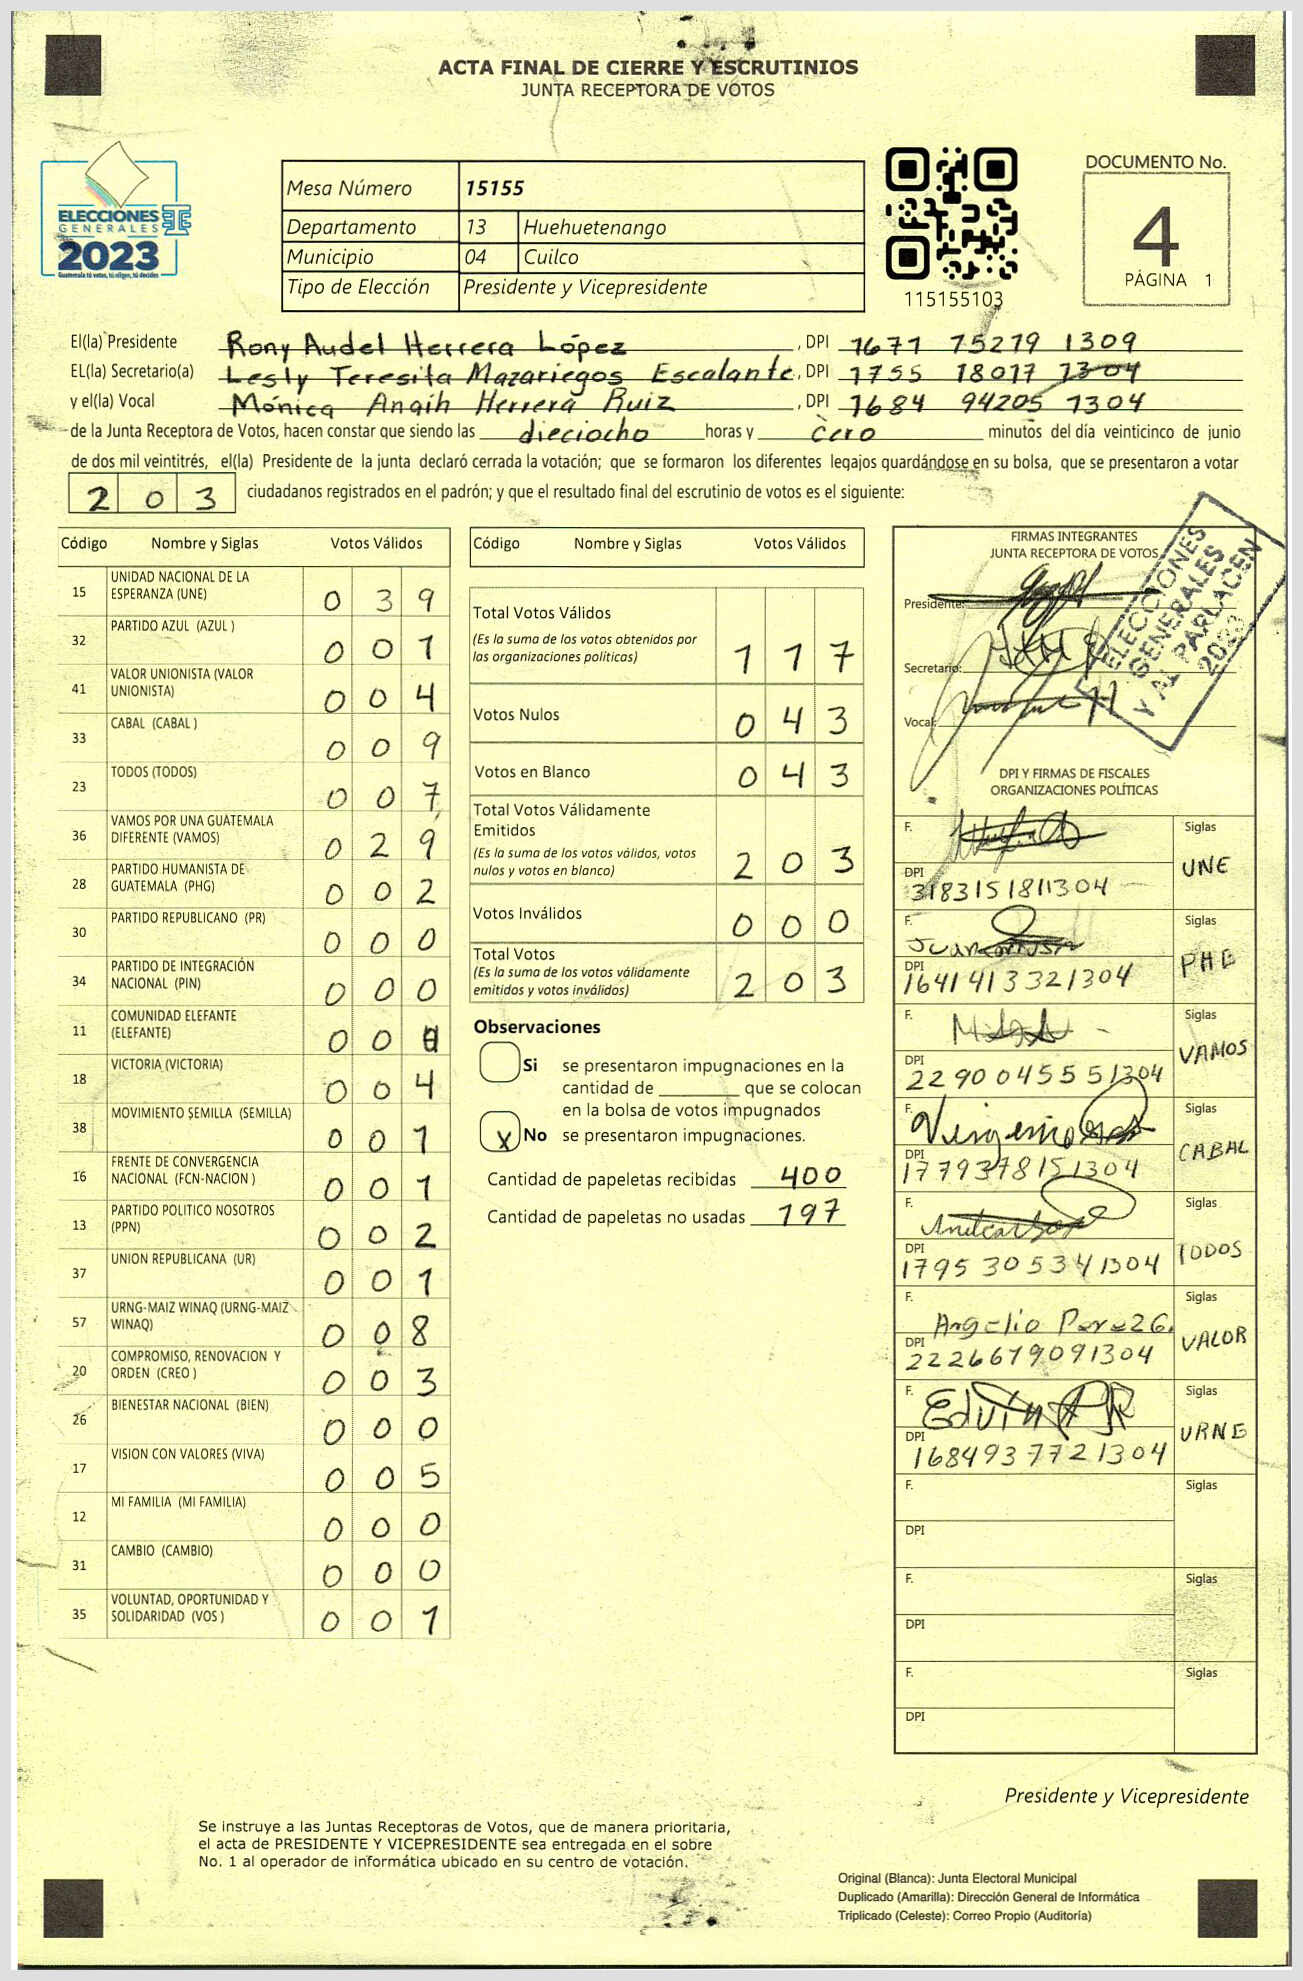 ACTA FINAL DE CIERRE Y ESCRUTINIOS
JUNTA RECEPTORA DE VOTOS
ELECCIONES
GENERALES
2023
Guatemala tú votas, tú eliges, tú decides
Mesa Número 15155
Departamento 13 Huehuetenango
Municipio 04 Cuilco
Tipo de Elección Presidente y Vicepresidente
115155103
DOCUMENTO No.
4
PÁGINA 1
El(la) Presidente Rony Audel Herrera López, DPI 1671 75279 1309
EL(la) Secretario(a) Lesly Teresita Mazariegos Escalante, DPI 1755 18017 1304
y el(la) Vocal Mónica Anaih Herrera Ruiz, DPI 1684 94205 1304
de la Junta Receptora de Votos, hacen constar que siendo las dieciocho horas y cero minutos del día veinticinco de junio
de dos mil veintitrés, el(la) Presidente de la junta declaró cerrada la votación; que se formaron los diferentes legajos guardándose en su bolsa, que se presentaron a votar
203 ciudadanos registrados en el padrón; y que el resultado final del escrutinio de votos es el siguiente:
Código Nombre y Siglas Votos Válidos
15 UNIDAD NACIONAL DE LA ESPERANZA (UNE) 0 3 9
32 PARTIDO AZUL (AZUL ) 0 0 1
41 VALOR UNIONISTA (VALOR UNIONISTA) 0 0 4
33 CABAL (CABAL ) 0 0 9
23 TODOS (TODOS) 0 0 7
36 VAMOS POR UNA GUATEMALA DIFERENTE (VAMOS) 0 2 9
28 PARTIDO HUMANISTA DE GUATEMALA (PHG) 0 0 2
30 PARTIDO REPUBLICANO (PR) 0 0 0
34 PARTIDO DE INTEGRACIÓN NACIONAL (PIN) 0 0 0
11 COMUNIDAD ELEFANTE (ELEFANTE) 0 0
18 VICTORIA (VICTORIA) 0 0 4
38 MOVIMIENTO SEMILLA (SEMILLA) 0 0 1
16 FRENTE DE CONVERGENCIA NACIONAL (FCN-NACION ) 0 0 1
13 PARTIDO POLITICO NOSOTROS (PPN) 0 0 2
37 UNION REPUBLICANA (UR) 0 0 1
57 URNG-MAIZ WINAQ (URNG-MAIZ WINAQ) 0 0 8
20 COMPROMISO, RENOVACION Y ORDEN (CREO ) 0 0 3
26 BIENESTAR NACIONAL (BIEN) 0 0 0
17 VISION CON VALORES (VIVA) 0 0 5
12 MI FAMILIA (MI FAMILIA) 0 0 0
31 CAMBIO (CAMBIO) 0 0 0
35 VOLUNTAD, OPORTUNIDAD Y SOLIDARIDAD (VOS ) 0 0 1
Código Nombre y Siglas Votos Válidos
Total Votos Válidos
(Es la suma de los votos obtenidos por
las organizaciones políticas) 1 1 7
Votos Nulos 0 4 3
Votos en Blanco 0 4 3
Total Votos Válidamente
Emitidos
(Es la suma de los votos válidos, votos
nulos y votos en blanco) 2 0 3
Votos Inválidos 0 0 0
Total Votos
(Es la suma de los votos válidamente
emitidos y votos inválidos) 2 0 3
Observaciones
Si se presentaron impugnaciones en la
cantidad de ________ que se colocan
en la bolsa de votos impugnados
x No se presentaron impugnaciones.
Cantidad de papeletas recibidas 400
Cantidad de papeletas no usadas 197
FIRMAS INTEGRANTES
JUNTA RECEPTORA DE VOTOS
Presidente:
Secretario:
Vocal:
ELECCIONES
GENERALES
Y AL PARLACEN
2023
DPI Y FIRMAS DE FISCALES
ORGANIZACIONES POLÍTICAS
F. Siglas
UNE
DPI
3183151811304
F. Juan Siglas
PHG
DPI
1641413321304
F. Siglas
VAMOS
DPI
2290045551304
F. Siglas
CABAL
DPI
1779378151304
F. Siglas
TODOS
DPI
1795305341304
F. Siglas
Angelio Perez G. VALOR
DPI
2226679091304
F. Edvin Siglas
URNG
DPI
1684937721304
F. Siglas
DPI
F. Siglas
DPI
F. Siglas
DPI
Presidente y Vicepresidente
Se instruye a las Juntas Receptoras de Votos, que de manera prioritaria,
el acta de PRESIDENTE Y VICEPRESIDENTE sea entregada en el sobre
No. 1 al operador de informática ubicado en su centro de votación.
Original (Blanca): Junta Electoral Municipal
Duplicado (Amarilla): Dirección General de Informática
Triplicado (Celeste): Correo Propio (Auditoría)